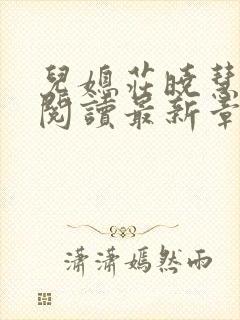 兒媳莊曉慧
閱讀最新章
瀟瀟嫣然雨